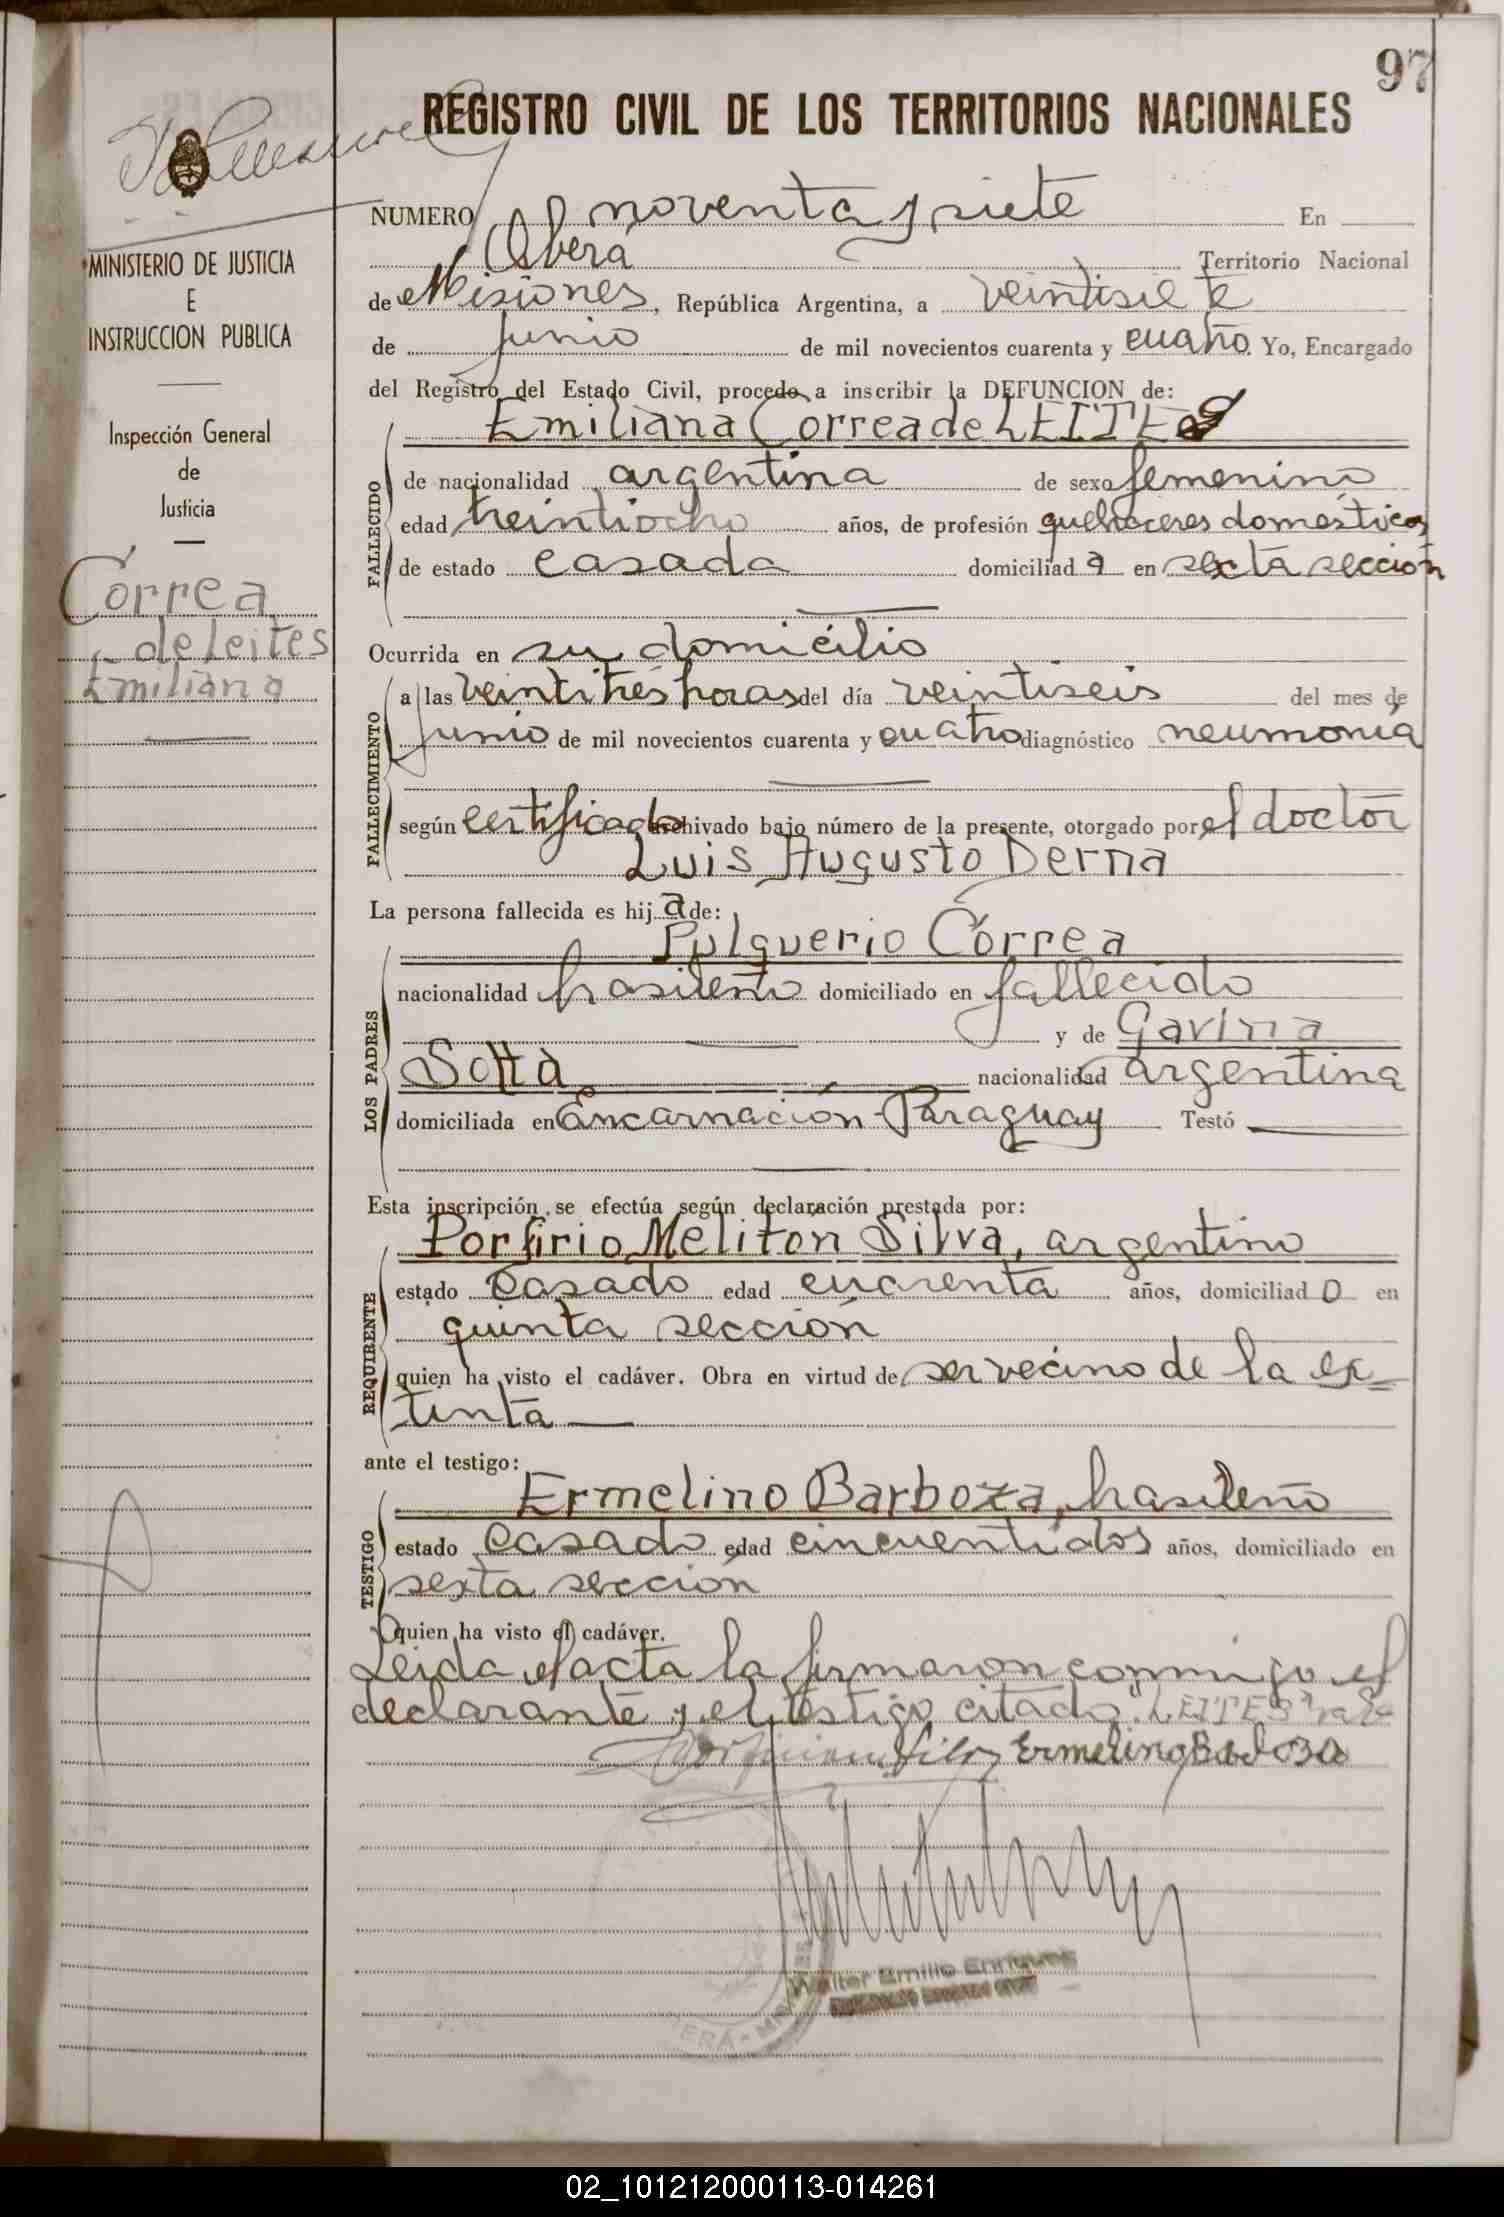 97
REGISTRO CIVIL DE LOS TERRITORIOS NACIONALES
NUMERO noventa y siete En
Oberá Territorio Nacional
de Misiones, República Argentina, a veintisiete
de junio de mil novecientos cuarenta y cuatro. Yo, Encargado
del Registro del Estado Civil, procedo a inscribir la DEFUNCION de:
Emiliana Correa de LEITES
FALLECIDO
de nacionalidad argentina de sexo femenino
edad treintiocho años, de profesión quehaceres domésticos
de estado casada domiciliad a en sexta sección
Ocurrida en su domicilio
FALLECIMIENTO
a las veintitrés horas del día veintiseis del mes de
junio de mil novecientos cuarenta y cuatro diagnóstico neumonía
según certificado archivado bajo número de la presente, otorgado por el doctor
Luis Augusto Derna
La persona fallecida es hij a de:
LOS PADRES
Pulquerio Correa
nacionalidad brasileño domiciliado en fallecido
y de Gavina
Sotta nacionalidad argentina
domiciliada en Encarnación-Paraguay Testó
Esta inscripción se efectúa según declaración prestada por:
REQUIRENTE
Porfirio Melitón Silva, argentino
estado casado edad cuarenta años, domiciliad o en
quinta sección
quien ha visto el cadáver. Obra en virtud de ser vecino de la ex-
tinta
ante el testigo:
TESTIGO
Ermelino Barboza, brasileño
estado casado edad cincuentidos años, domiciliado en
sexta sección
quien ha visto el cadáver.
Leida el acta la firmaron conmigo el
declarante y el testigo citado. "LEITES" vale
Ermelino Barboza
Walter Emilio Enriquez
MINISTERIO DE JUSTICIA
E
INSTRUCCION PUBLICA
Inspección General
de
Justicia
Correa
de Leites
Emiliana
02_101212000113-014261